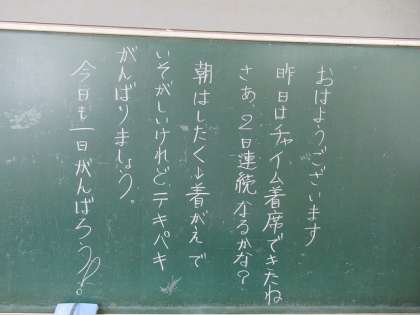 おはようございます
昨日はチャイム着席できたね
さあ、2日連続なるかな?
朝はしたく↓着がえで
いそがしいけれど、テキパキ
がんばりましょう。
今日も一日がんばろう!